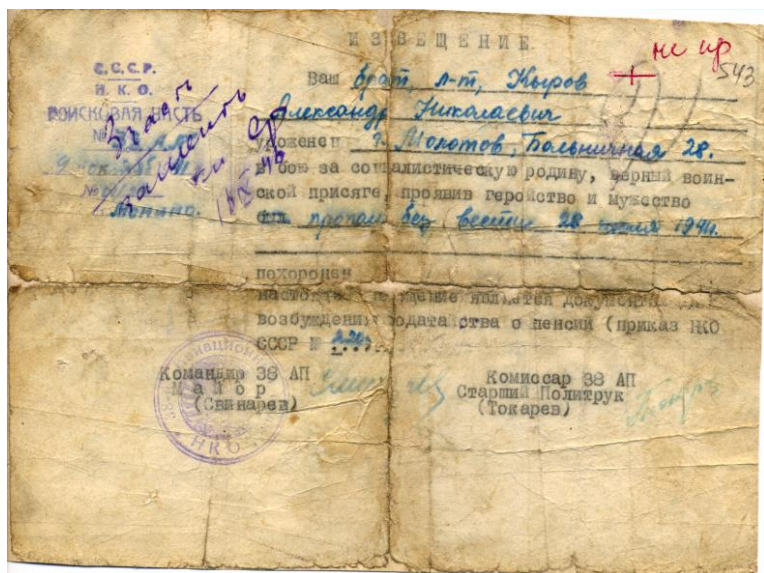 ИЗВЕЩЕНИЕ
не пр
543
С.С.С.Р.
Н. К. О.
ВОИСКОВАЯ ЧАСТЬ
№
№
Монино.
Ваш брат, л-т, Кыров
Александр Николаевич
уроженец г. Молотов, Больничная 28.
в бою за социалистическую родину, верный воин-
ской присяге, проявив геройство и мужество
пропал без вести 28 1941.
похоронен
настоящее извещение является документом для
возбуждения ходатайства о пенсии (приказ НКО
СССР №
Командир 38 АП
Майор
(Свинарев)
Комиссар 38 АП
Старший Политрук
(Токарев)
НКО